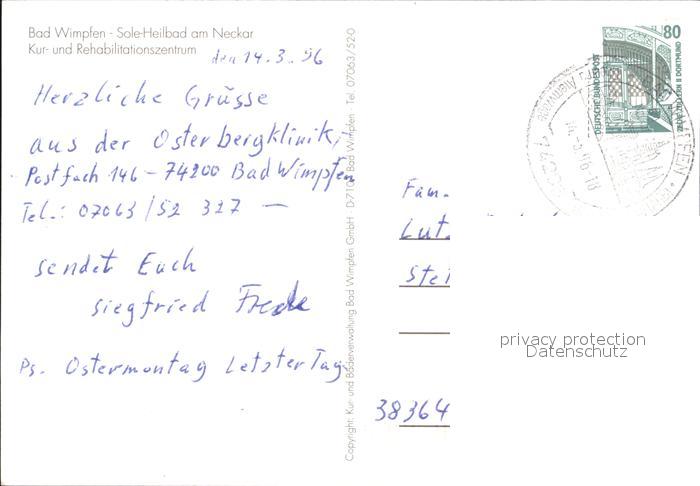 Bad Wimpfen - Sole-Heilbad am Neckar
Kur- und Rehabilitationszentrum
den 14.3.96
Herzliche Grüsse
aus der Osterbergklinik,
Postfach 146 - 74200 Bad Wimpfen
Tel.: 07063/52 327 —
sendet Euch
siegfried Frede
Ps. Ostermontag Letzter Tag.
Copyright: Kur- und Bäderverwaltung Bad Wimpfen GmbH · D7107 Bad Wimpfen · Tel. 07063/52-0
80
DEUTSCHE BUNDESPOST
ZECHE ZOLLERN II DORTMUND
Fam.
Lut
Stei
38364
privacy protection
Datenschutz